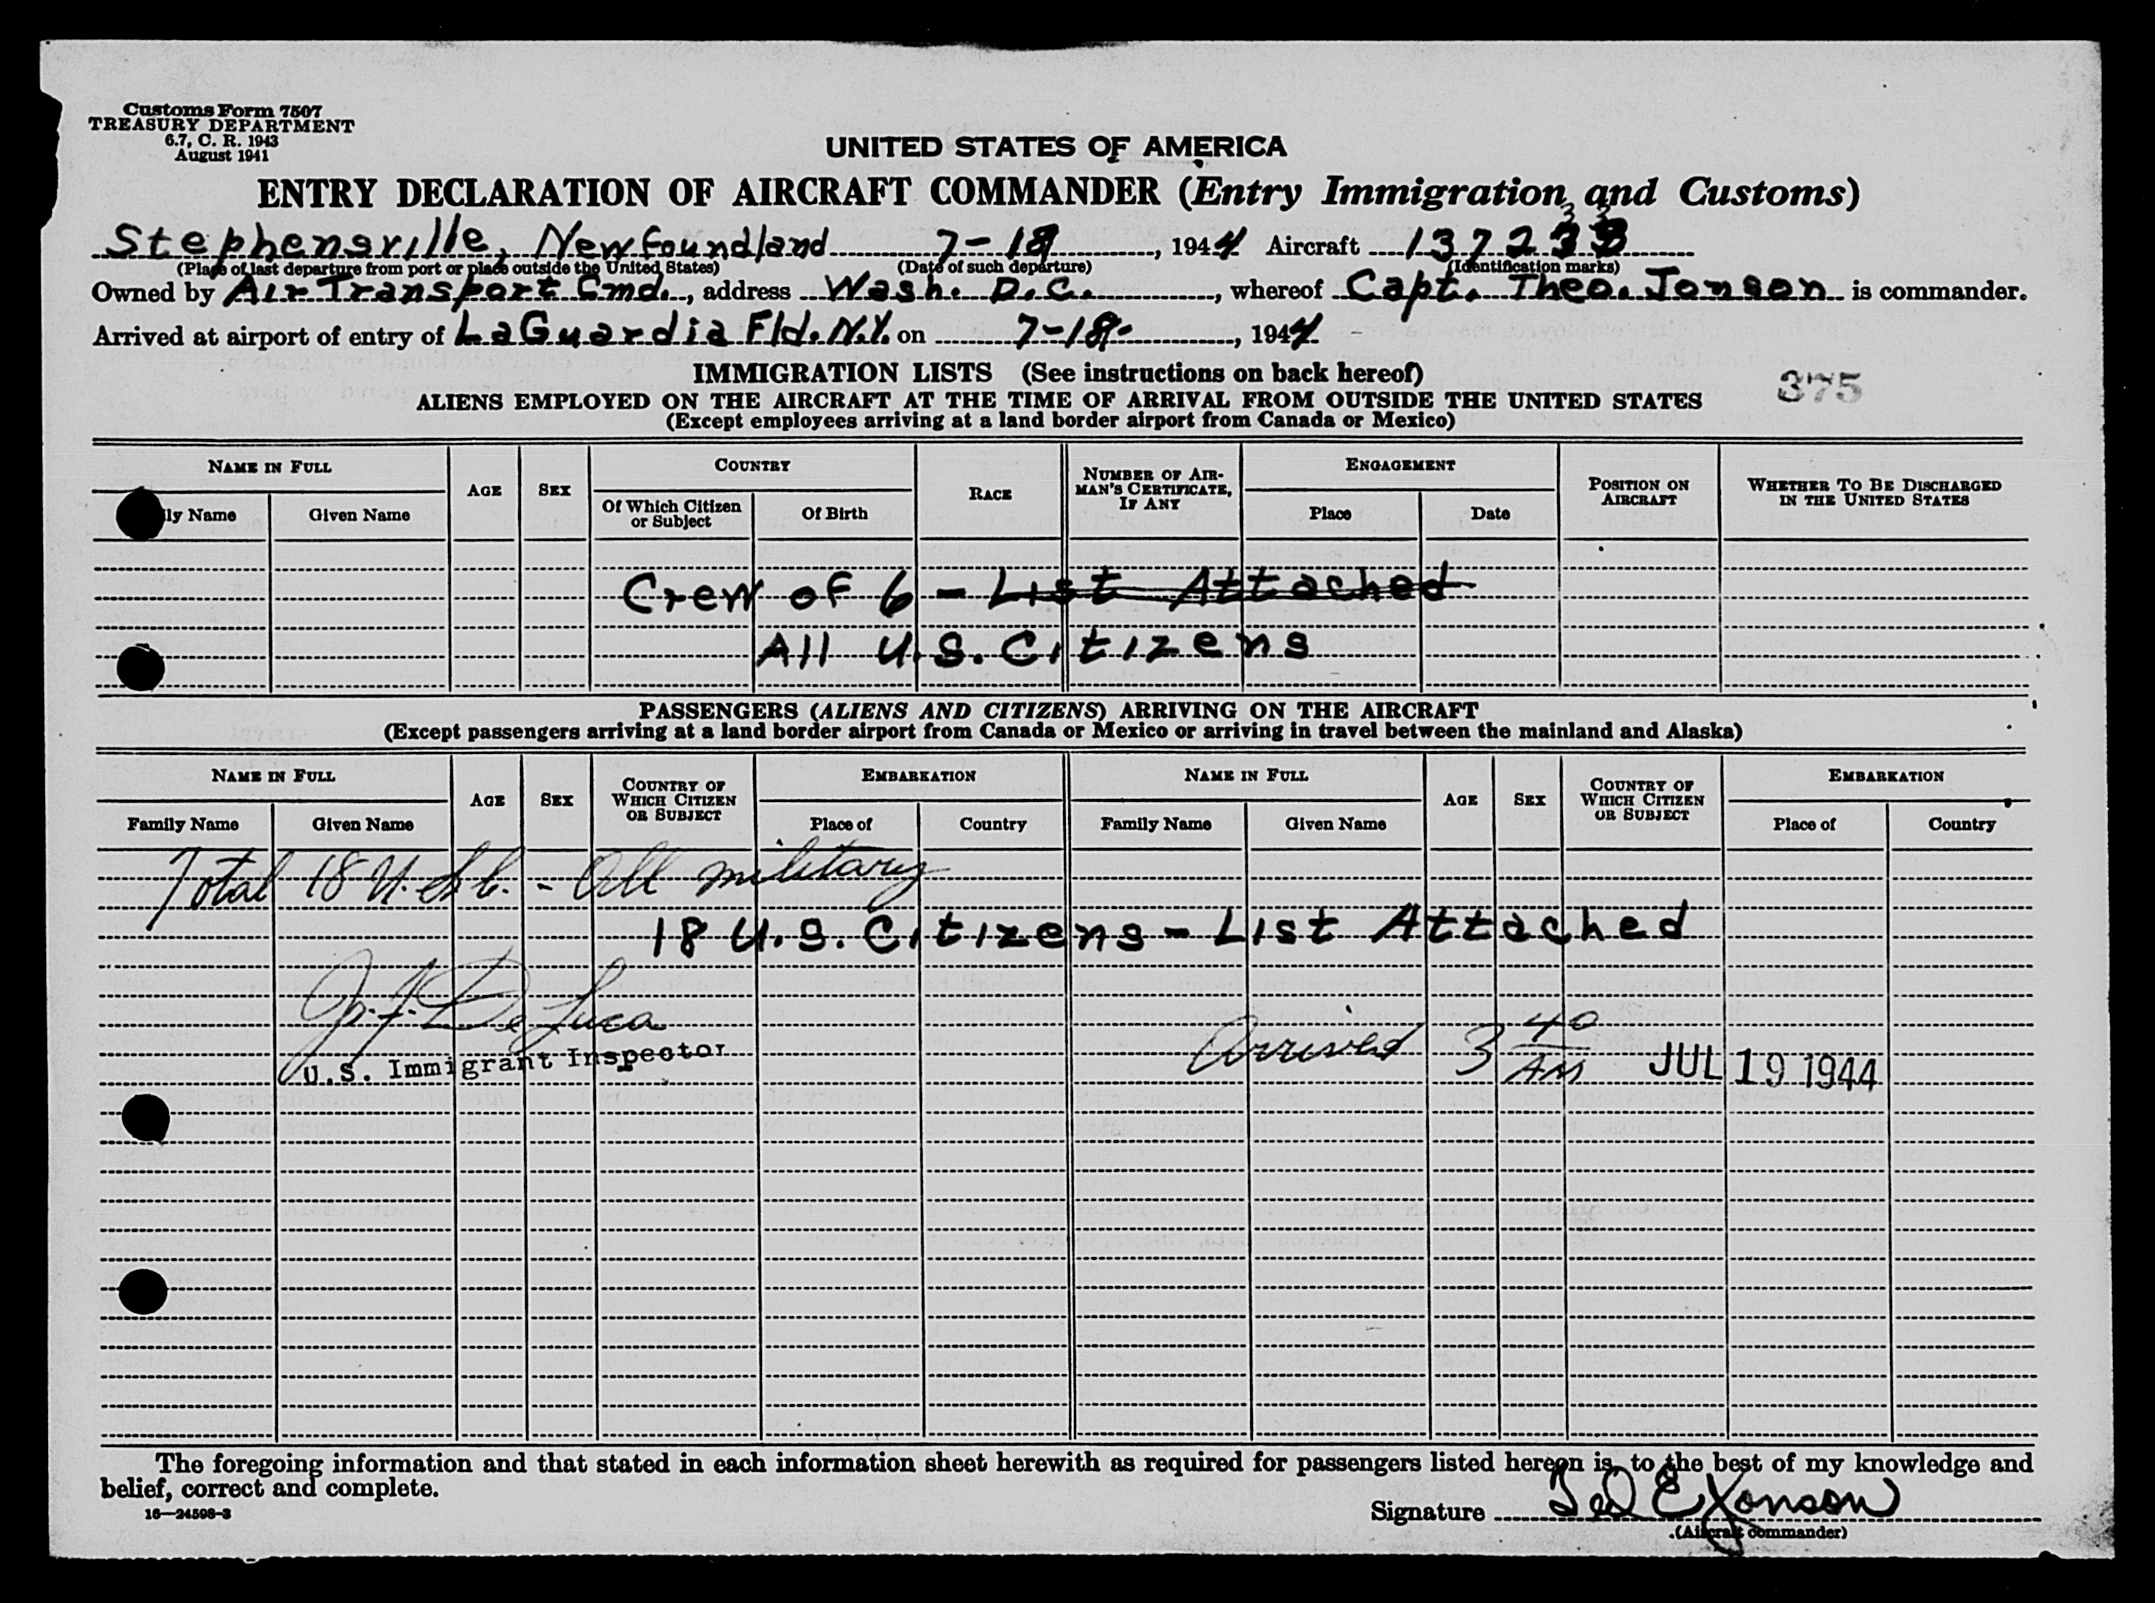 Customs Form 7507
TREASURY DEPARTMENT
6.7, C. R. 1943
August 1941
UNITED STATES OF AMERICA
ENTRY DECLARATION OF AIRCRAFT COMMANDER (Entry Immigration and Customs)
Stephensville, Newfoundland 7-18, 1944 Aircraft 137233
(Place of last departure from port or place outside the United States) (Date of such departure) (Identification marks)
Owned by Air Transport Cmd., address Wash. D.C., whereof Capt. Theo. Jonson is commander.
Arrived at airport of entry of LaGuardia Fld. N.Y. on 7-18-, 1944
IMMIGRATION LISTS (See instructions on back hereof)
375
ALIENS EMPLOYED ON THE AIRCRAFT AT THE TIME OF ARRIVAL FROM OUTSIDE THE UNITED STATES
(Except employees arriving at a land border airport from Canada or Mexico)
NAME IN FULL AGE SEX COUNTRY RACE NUMBER OF AIRMAN'S CERTIFICATE, IF ANY ENGAGEMENT POSITION ON AIRCRAFT WHETHER TO BE DISCHARGED IN THE UNITED STATES
ly Name Given Name Of Which Citizen or Subject Of Birth Place Date
Crew of 6 - List Attached
All U.S. Citizens
PASSENGERS (ALIENS AND CITIZENS) ARRIVING ON THE AIRCRAFT
(Except passengers arriving at a land border airport from Canada or Mexico or arriving in travel between the mainland and Alaska)
NAME IN FULL AGE SEX COUNTRY OF WHICH CITIZEN OR SUBJECT EMBARKATION NAME IN FULL AGE SEX COUNTRY OF WHICH CITIZEN OR SUBJECT EMBARKATION
Family Name Given Name Place of Country Family Name Given Name Place of Country
Total 18 U.S.C. - All military
18 U.S. Citizens - List Attached
J. De Luca
U.S. Immigrant Inspector
Arrived 3 40 AM JUL 19 1944
The foregoing information and that stated in each information sheet herewith as required for passengers listed hereon is, to the best of my knowledge and
belief, correct and complete.
16—24598-3
Signature Ted E Jonson
(Aircraft commander)